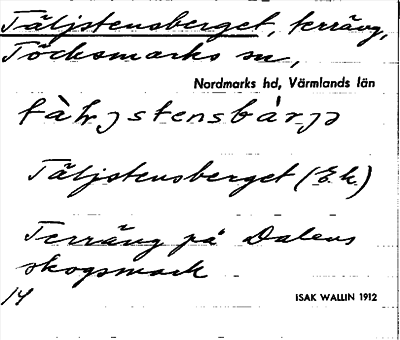 Täljstensberget, terräng,
Töcksmarks sn,
Nordmarks hd, Värmlands län
Täljstensberget (E.k.)
Terräng på Dalens
skogsmark
14 ISAK WALLIN 1912